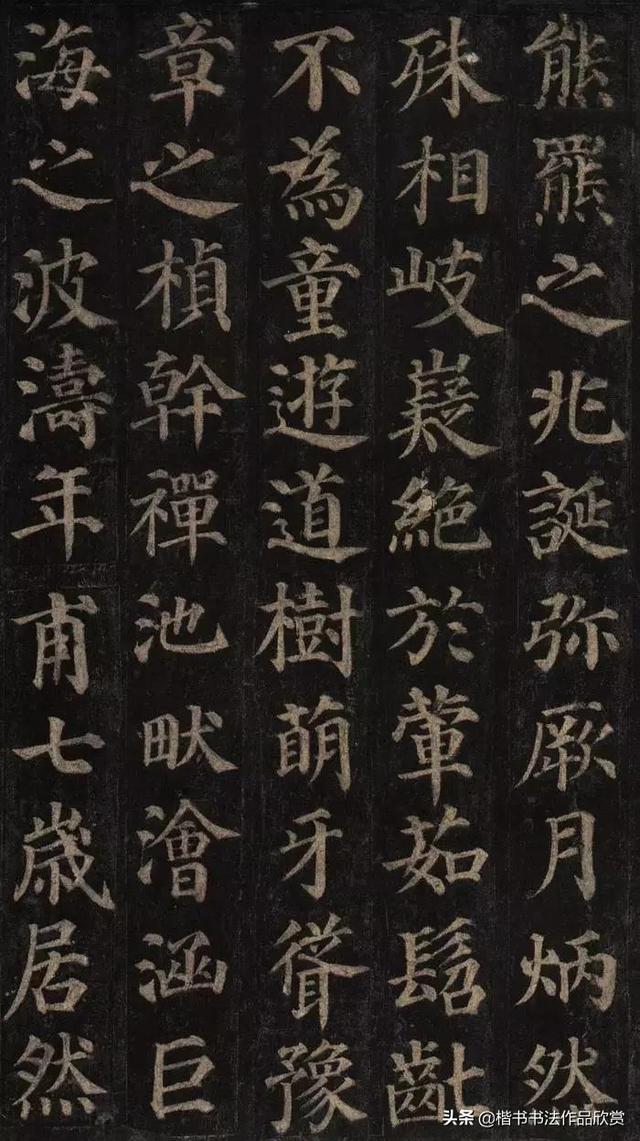 熊羆之兆誕弥厥月炳然
殊相岐嶷絶於葷茹髫齔
不為童遊道樹萌牙聳豫
章之楨幹禪池畎澮涵巨
海之波濤年甫七歳居然
头条@楷书书法作品欣赏